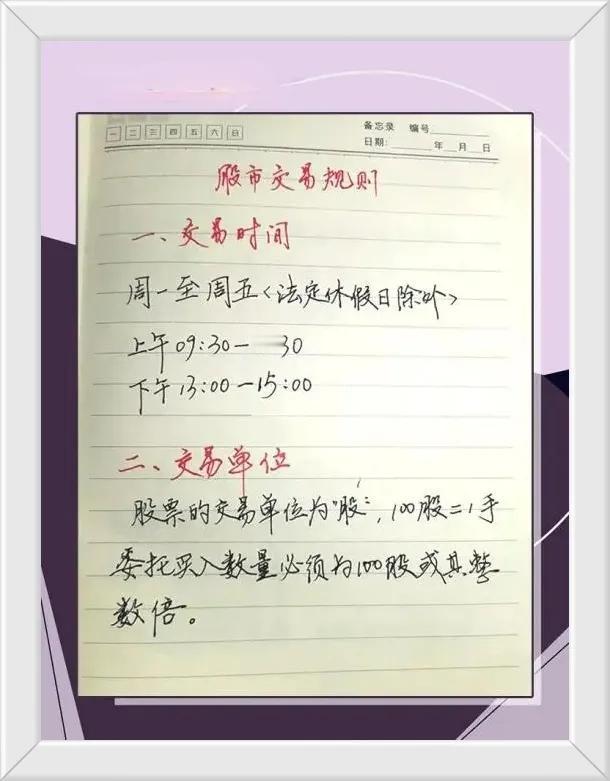 一 二 三 四 五 六 日
备忘录 编号
日期: 年 月 日
股市交易规则
一、交易时间
周一至周五<法定休假日除外>
上午09:30— 30
下午13:00—15:00
二、交易单位
股票的交易单位为"股",100股=1手
委托买入数量必须为100股或其整
数倍。